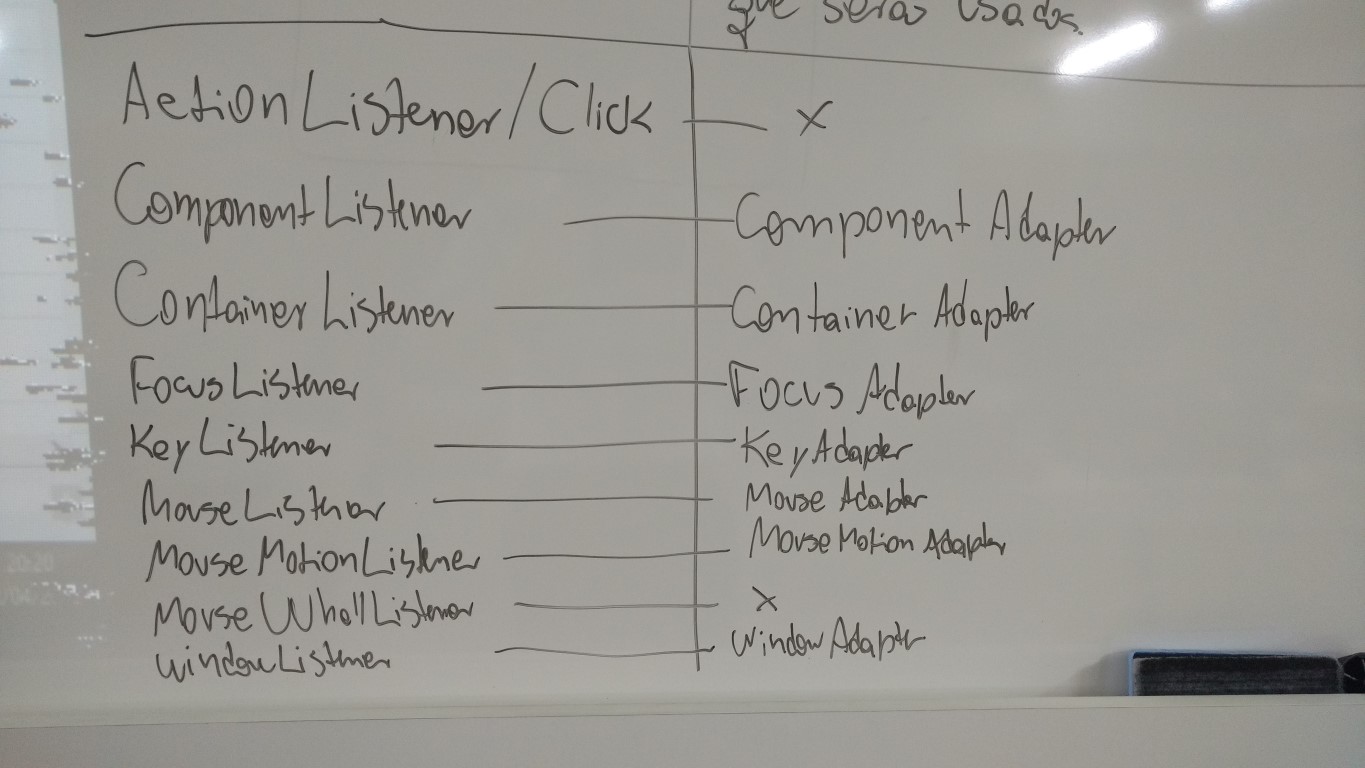 que serão usados.
ActionListener/Click — x
ComponentListener — Component Adapter
ContainerListener — Container Adapter
FocusListener — Focus Adapter
KeyListener — KeyAdapter
MouseListener — Mouse Adapter
MouseMotionListener — MouseMotion Adapter
MouseWhellListener — x
windowListener — windowAdapter
20:20